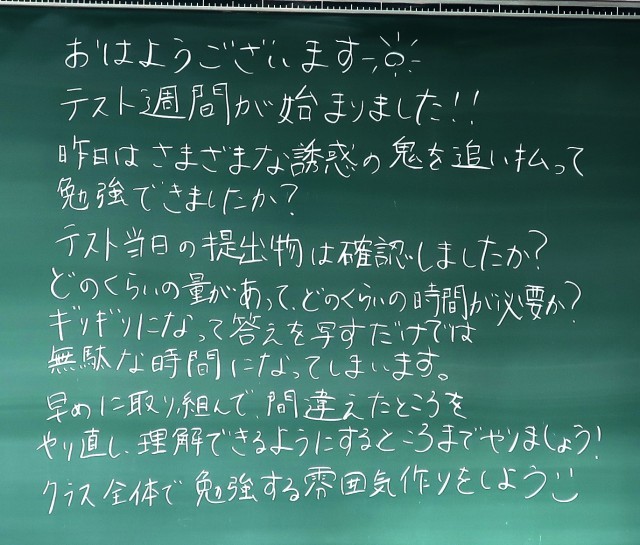 おはようございます
テスト週間が始まりました!!
昨日はさまざまな誘惑の鬼を追い払って
勉強できましたか?
テスト当日の提出物は確認しましたか?
どのくらいの量があって、どのくらいの時間が必要か?
ギリギリになって答えを写すだけでは
無駄な時間になってしまいます。
早めに取り組んで、間違えたところを
やり直し、理解できるようにするところまでやりましょう!
クラス全体で勉強する雰囲気作りをしよう